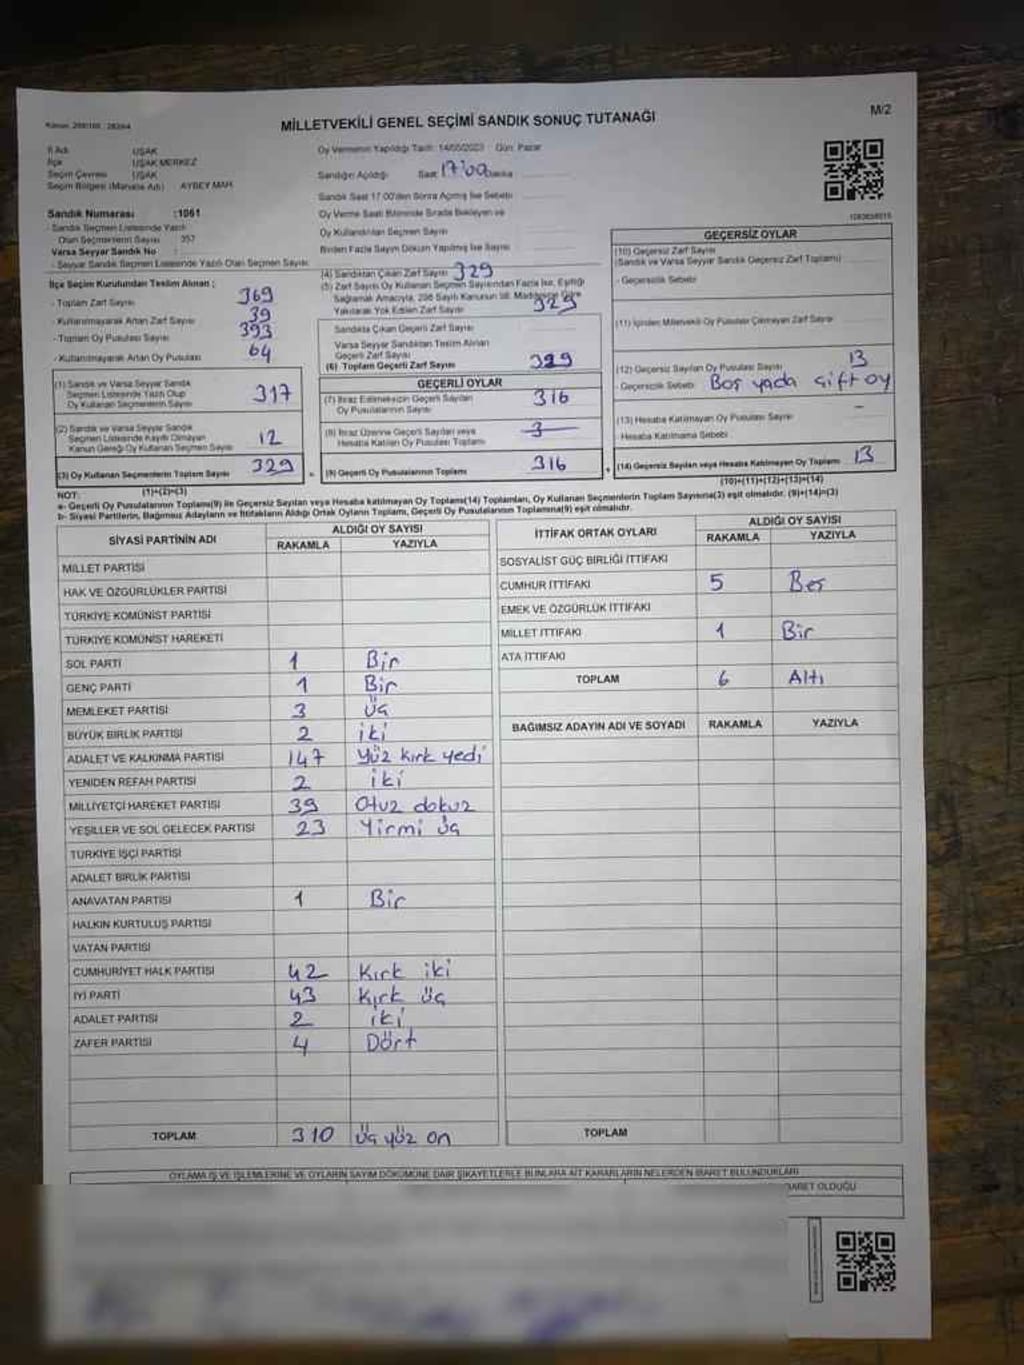 MİLLETVEKİLİ GENEL SEÇİMİ SANDIK SONUÇ TUTANAĞI
M/2
İl Adı UŞAK
İlçe UŞAK MERKEZ
Seçim Çevresi UŞAK
Seçim Bölgesi (Mahalle Adı) AYBEY MAH.
Sandık Numarası :1061
- Sandık Seçmen Listesinde Yazılı
Olan Seçmenlerin Sayısı 357
Varsa Seyyar Sandık No :
- Seyyar Sandık Seçmen Listesinde Yazılı Olan Seçmen Sayısı
İlçe Seçim Kurulundan Teslim Alınan ;
- Toplam Zarf Sayısı 369
- Kullanılmayarak Artan Zarf Sayısı 39
- Toplam Oy Pusulası Sayısı 393
- Kullanılmayarak Artan Oy Pusulası 64
(1) Sandık ve Varsa Seyyar Sandık
Seçmen Listesinde Yazılı Olup
Oy Kullanan Seçmenlerin Sayısı 317
(2) Sandık ve Varsa Seyyar Sandık
Seçmen Listesinde Kayıtlı Olmayan
Kanun Gereği Oy Kullanan Seçmen Sayısı 12
(3) Oy Kullanan Seçmenlerin Toplam Sayısı 329
(1)+(2)=(3)
Oy Vermenin Yapıldığı Tarih: 14/05/2023 Gün: Pazar
Sandığın Açıldığı Saat 17:00 Dakika
Sandık Saat 17.00'den Sonra Açılmış İse Sebebi
Oy Verme Saati Bitiminde Sırada Bekleyen ve
Oy Kullandırılan Seçmen Sayısı
Birden Fazla Sayım Döküm Yapılmış İse Sayısı
(4) Sandıktan Çıkan Zarf Sayısı 329
(5) Zarf Sayısı Oy Kullanan Seçmen Sayısından Fazla İse, Eşitliği
Sağlamak Amacıyla, 298 Sayılı Kanunun 98. Maddesine Göre
Yakılarak Yok Edilen Zarf Sayısı 329
Sandıkta Çıkan Geçerli Zarf Sayısı
Varsa Seyyar Sandıktan Teslim Alınan
Geçerli Zarf Sayısı
(6) Toplam Geçerli Zarf Sayısı 329
GEÇERLİ OYLAR
(7) İtiraz Edilmeksizin Geçerli Sayılan
Oy Pusulalarının Sayısı 316
(8) İtiraz Üzerine Geçerli Sayılan veya
Hesaba Katılan Oy Pusulası Toplamı 3
(9) Geçerli Oy Pusulalarının Toplamı 316
GEÇERSİZ OYLAR
(10) Geçersiz Zarf Sayısı
(Sandık ve Varsa Seyyar Sandık Geçersiz Zarf Toplamı)
- Geçersizlik Sebebi
(11) İçinden Milletvekili Oy Pusulası Çıkmayan Zarf Sayısı
(12) Geçersiz Sayılan Oy Pusulası Sayısı 13
- Geçersizlik Sebebi Boş yada çift oy
(13) Hesaba Katılmayan Oy Pusulası Sayısı -
Hesaba Katılmama Sebebi
(14) Geçersiz Sayılan veya Hesaba Katılmayan Oy Toplamı 13
(10)+(11)+(12)+(13)=(14)
NOT:
a- Geçerli Oy Pusulalarının Toplamı(9) ile Geçersiz Sayılan veya Hesaba katılmayan Oy Toplamı(14) Toplamları, Oy Kullanan Seçmenlerin Toplam Sayısına(3) eşit olmalıdır. (9)+(14)=(3)
b- Siyasi Partilerin, Bağımsız Adayların ve İttifakların Aldığı Ortak Oyların Toplamı, Geçerli Oy Pusulalarının Toplamına(9) eşit olmalıdır.
SİYASİ PARTİNİN ADI ALDIĞI OY SAYISI
RAKAMLA YAZIYLA
MİLLET PARTİSİ
HAK VE ÖZGÜRLÜKLER PARTİSİ
TÜRKİYE KOMÜNİST PARTİSİ
TÜRKİYE KOMÜNİST HAREKETİ
SOL PARTİ 1 Bir
GENÇ PARTİ 1 Bir
MEMLEKET PARTİSİ 3 üç
BÜYÜK BİRLİK PARTİSİ 2 iki
ADALET VE KALKINMA PARTİSİ 147 Yüz kırk yedi
YENİDEN REFAH PARTİSİ 2 iki
MİLLİYETÇİ HAREKET PARTİSİ 39 Otuz dokuz
YEŞİLLER VE SOL GELECEK PARTİSİ 23 Yirmi üç
TÜRKİYE İŞÇİ PARTİSİ
ADALET BİRLİK PARTİSİ
ANAVATAN PARTİSİ 1 Bir
HALKIN KURTULUŞ PARTİSİ
VATAN PARTİSİ
CUMHURİYET HALK PARTİSİ 42 Kırk iki
İYİ PARTİ 43 Kırk üç
ADALET PARTİSİ 2 iki
ZAFER PARTİSİ 4 Dört
TOPLAM 310 üç yüz on
İTTİFAK ORTAK OYLARI ALDIĞI OY SAYISI
RAKAMLA YAZIYLA
SOSYALİST GÜÇ BİRLİĞİ İTTİFAKI
CUMHUR İTTİFAKI 5 Beş
EMEK VE ÖZGÜRLÜK İTTİFAKI
MİLLET İTTİFAKI 1 Bir
ATA İTTİFAKI
TOPLAM 6 Altı
BAĞIMSIZ ADAYIN ADI VE SOYADI RAKAMLA YAZIYLA
TOPLAM
OYLAMA İŞ VE İŞLEMLERİNE VE OYLARIN SAYIM DÖKÜMÜNE DAİR ŞİKAYETLERLE BUNLARA AİT KARARLARIN NELERDEN İBARET BULUNDUKLARI
İBARET OLDUĞU